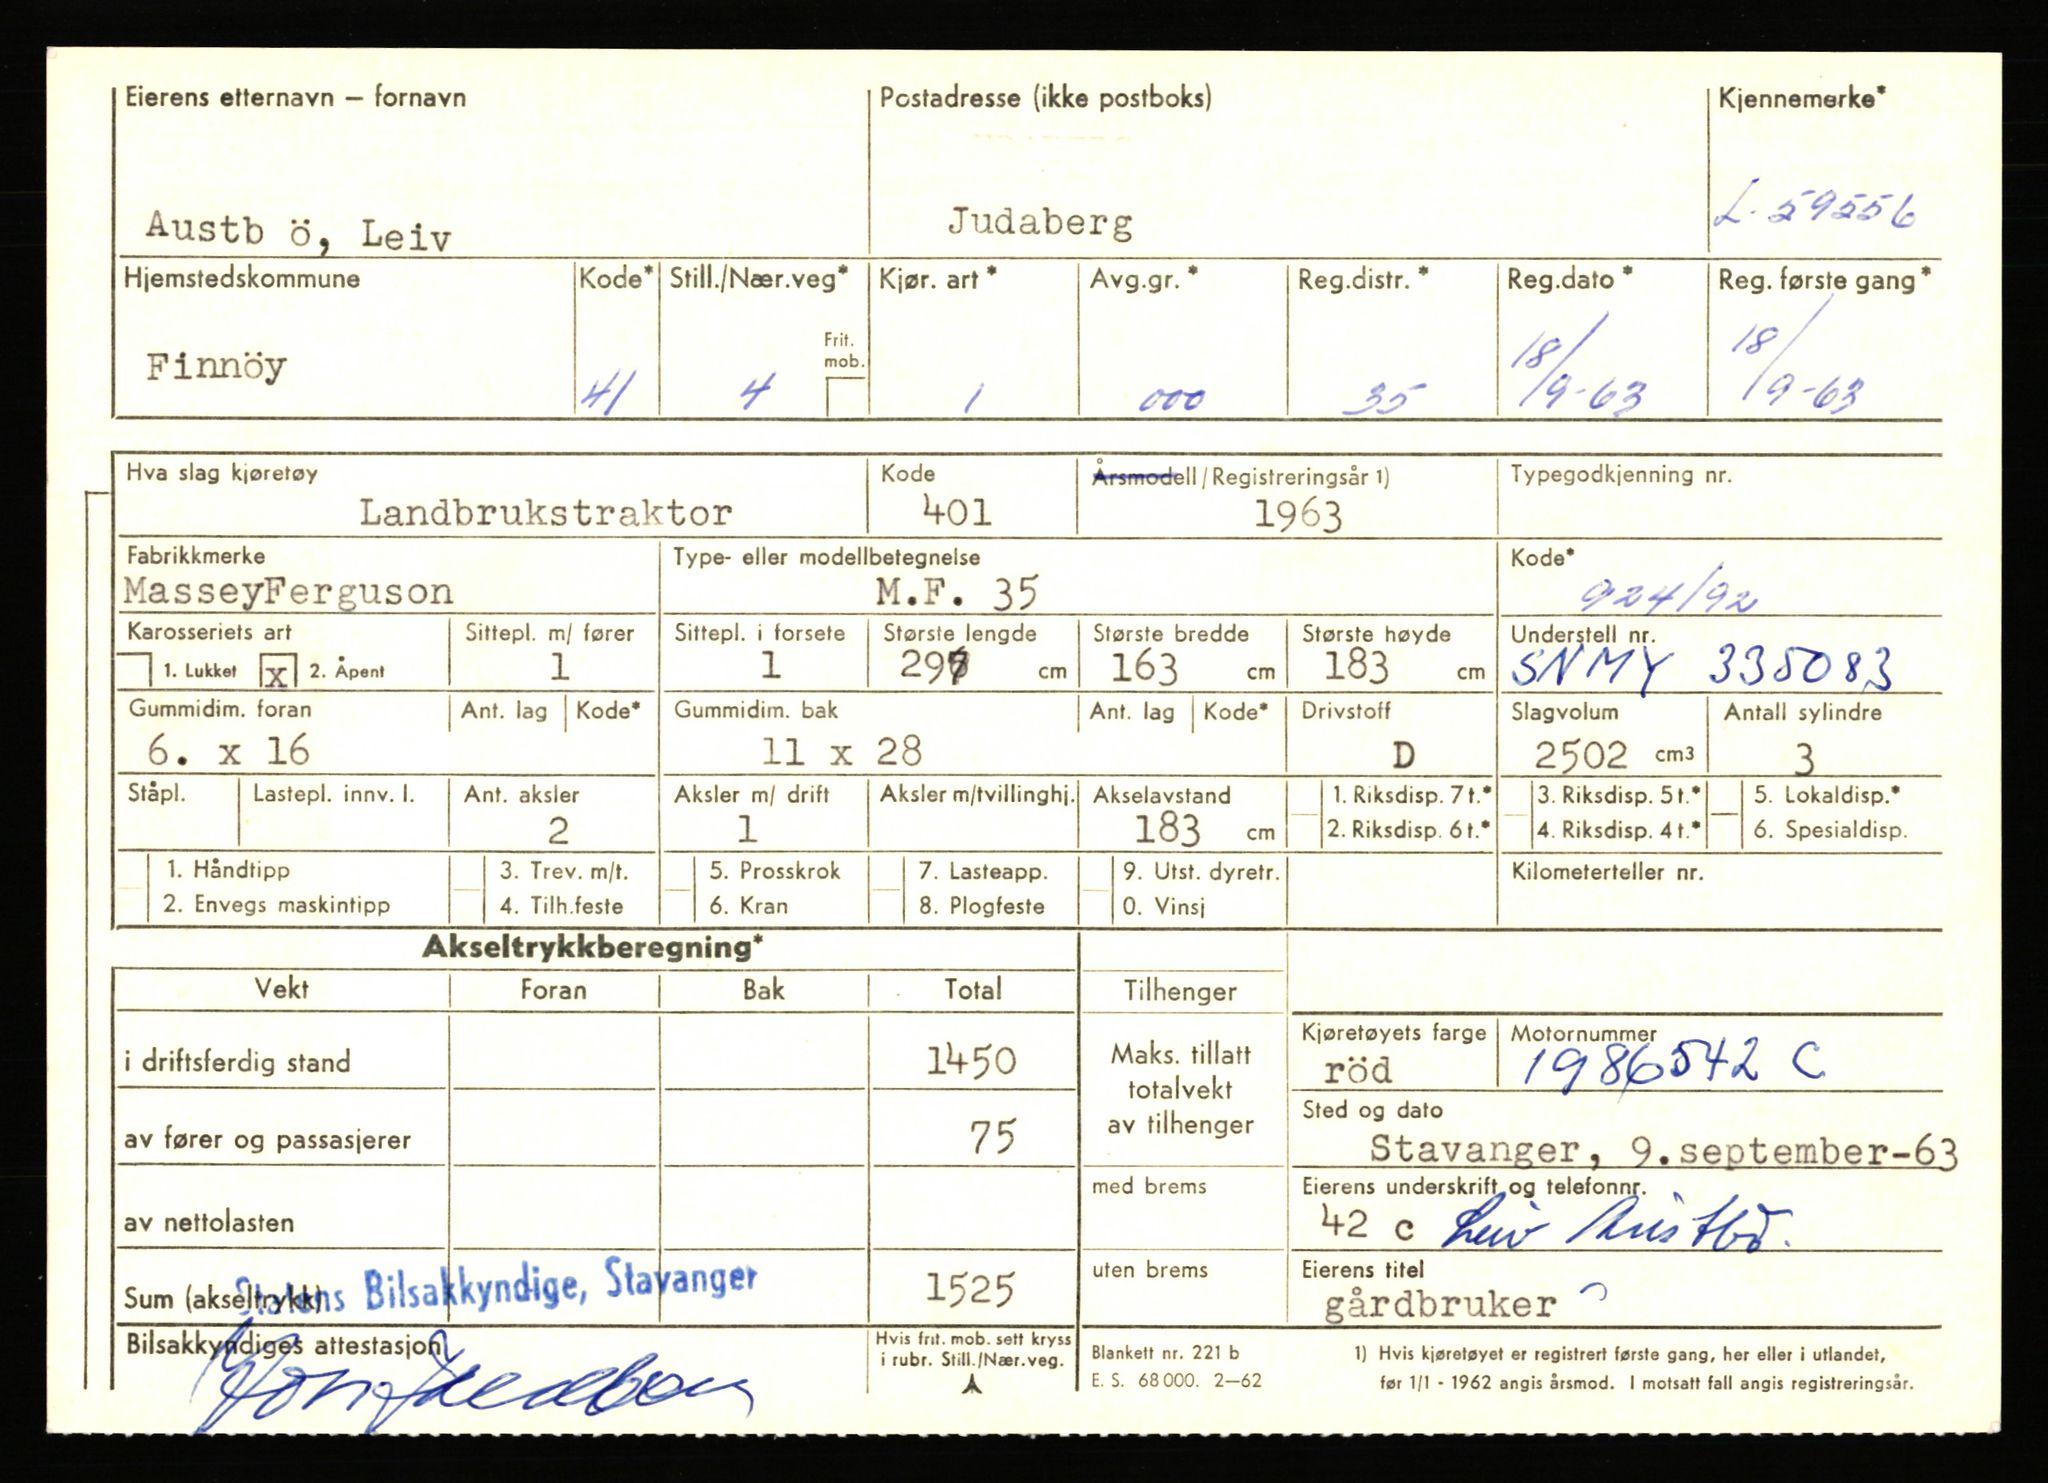 Eierens etternavn – fornavn Postadresse (ikke postboks) Kjennemerke*
Austb ö, Leiv Judaberg L-59556
Hjemstedskommune Kode* Still./Nær.veg* Kjør. art* Avg.gr.* Reg.distr.* Reg.dato* Reg. første gang*
Frit. mob.
Finnöy 41 4 1 000 35 18/9-63 18/9-63
Hva slag kjøretøy Kode Årsmodell/Registreringsår 1) Typegodkjenning nr.
Landbrukstraktor 401 1963
Fabrikkmerke Type- eller modellbetegnelse Kode*
MasseyFerguson M.F. 35 924/92
Karosseriets art Sittepl. m/ fører Sittepl. i forsete Største lengde Største bredde Største høyde Understell nr.
1. Lukket x 2. Åpent 1 1 297 cm 163 cm 183 cm SNMY 335083
Gummidim. foran Ant. lag Kode* Gummidim. bak Ant. lag Kode* Drivstoff Slagvolum Antall sylindre
6. x 16 11 x 28 D 2502 cm3 3
Ståpl. Lastepl. innv. l. Ant. aksler Aksler m/ drift Aksler m/tvillinghj. Akselavstand 1. Riksdisp. 7 t.* 3. Riksdisp. 5 t.* 5. Lokaldisp.*
2 1 183 cm 2. Riksdisp. 6 t.* 4. Riksdisp. 4 t.* 6. Spesialdisp.
1. Håndtipp 3. Trev. m/t. 5. Prosskrok 7. Lasteapp. 9. Utst. dyretr. Kilometerteller nr.
2. Envegs maskintipp 4. Tilh.feste 6. Kran 8. Plogfeste 0. Vinsj
Akseltrykkberegning*
Vekt Foran Bak Total Tilhenger
Kjøretøyets farge Motornummer
i driftsferdig stand 1450 Maks. tillatt totalvekt av tilhenger röd 1986542 C
Sted og dato
av fører og passasjerer 75 Stavanger, 9.september-63
med brems Eierens underskrift og telefonnr.
av nettolasten 42 c Leiv Austbö.
uten brems Eierens titel
Statens Bilsakkyndige, Stavanger
Sum (akseltrykk) 1525 gårdbruker
Bilsakkyndiges attestasjon Hvis frit. mob. sett kryss i rubr. Still./Nær.veg.
Blankett nr. 221 b
E. S. 68 000. 2–62
1) Hvis kjøretøyet er registrert første gang, her eller i utlandet,
før 1/1 - 1962 angis årsmod. I motsatt fall angis registreringsår.